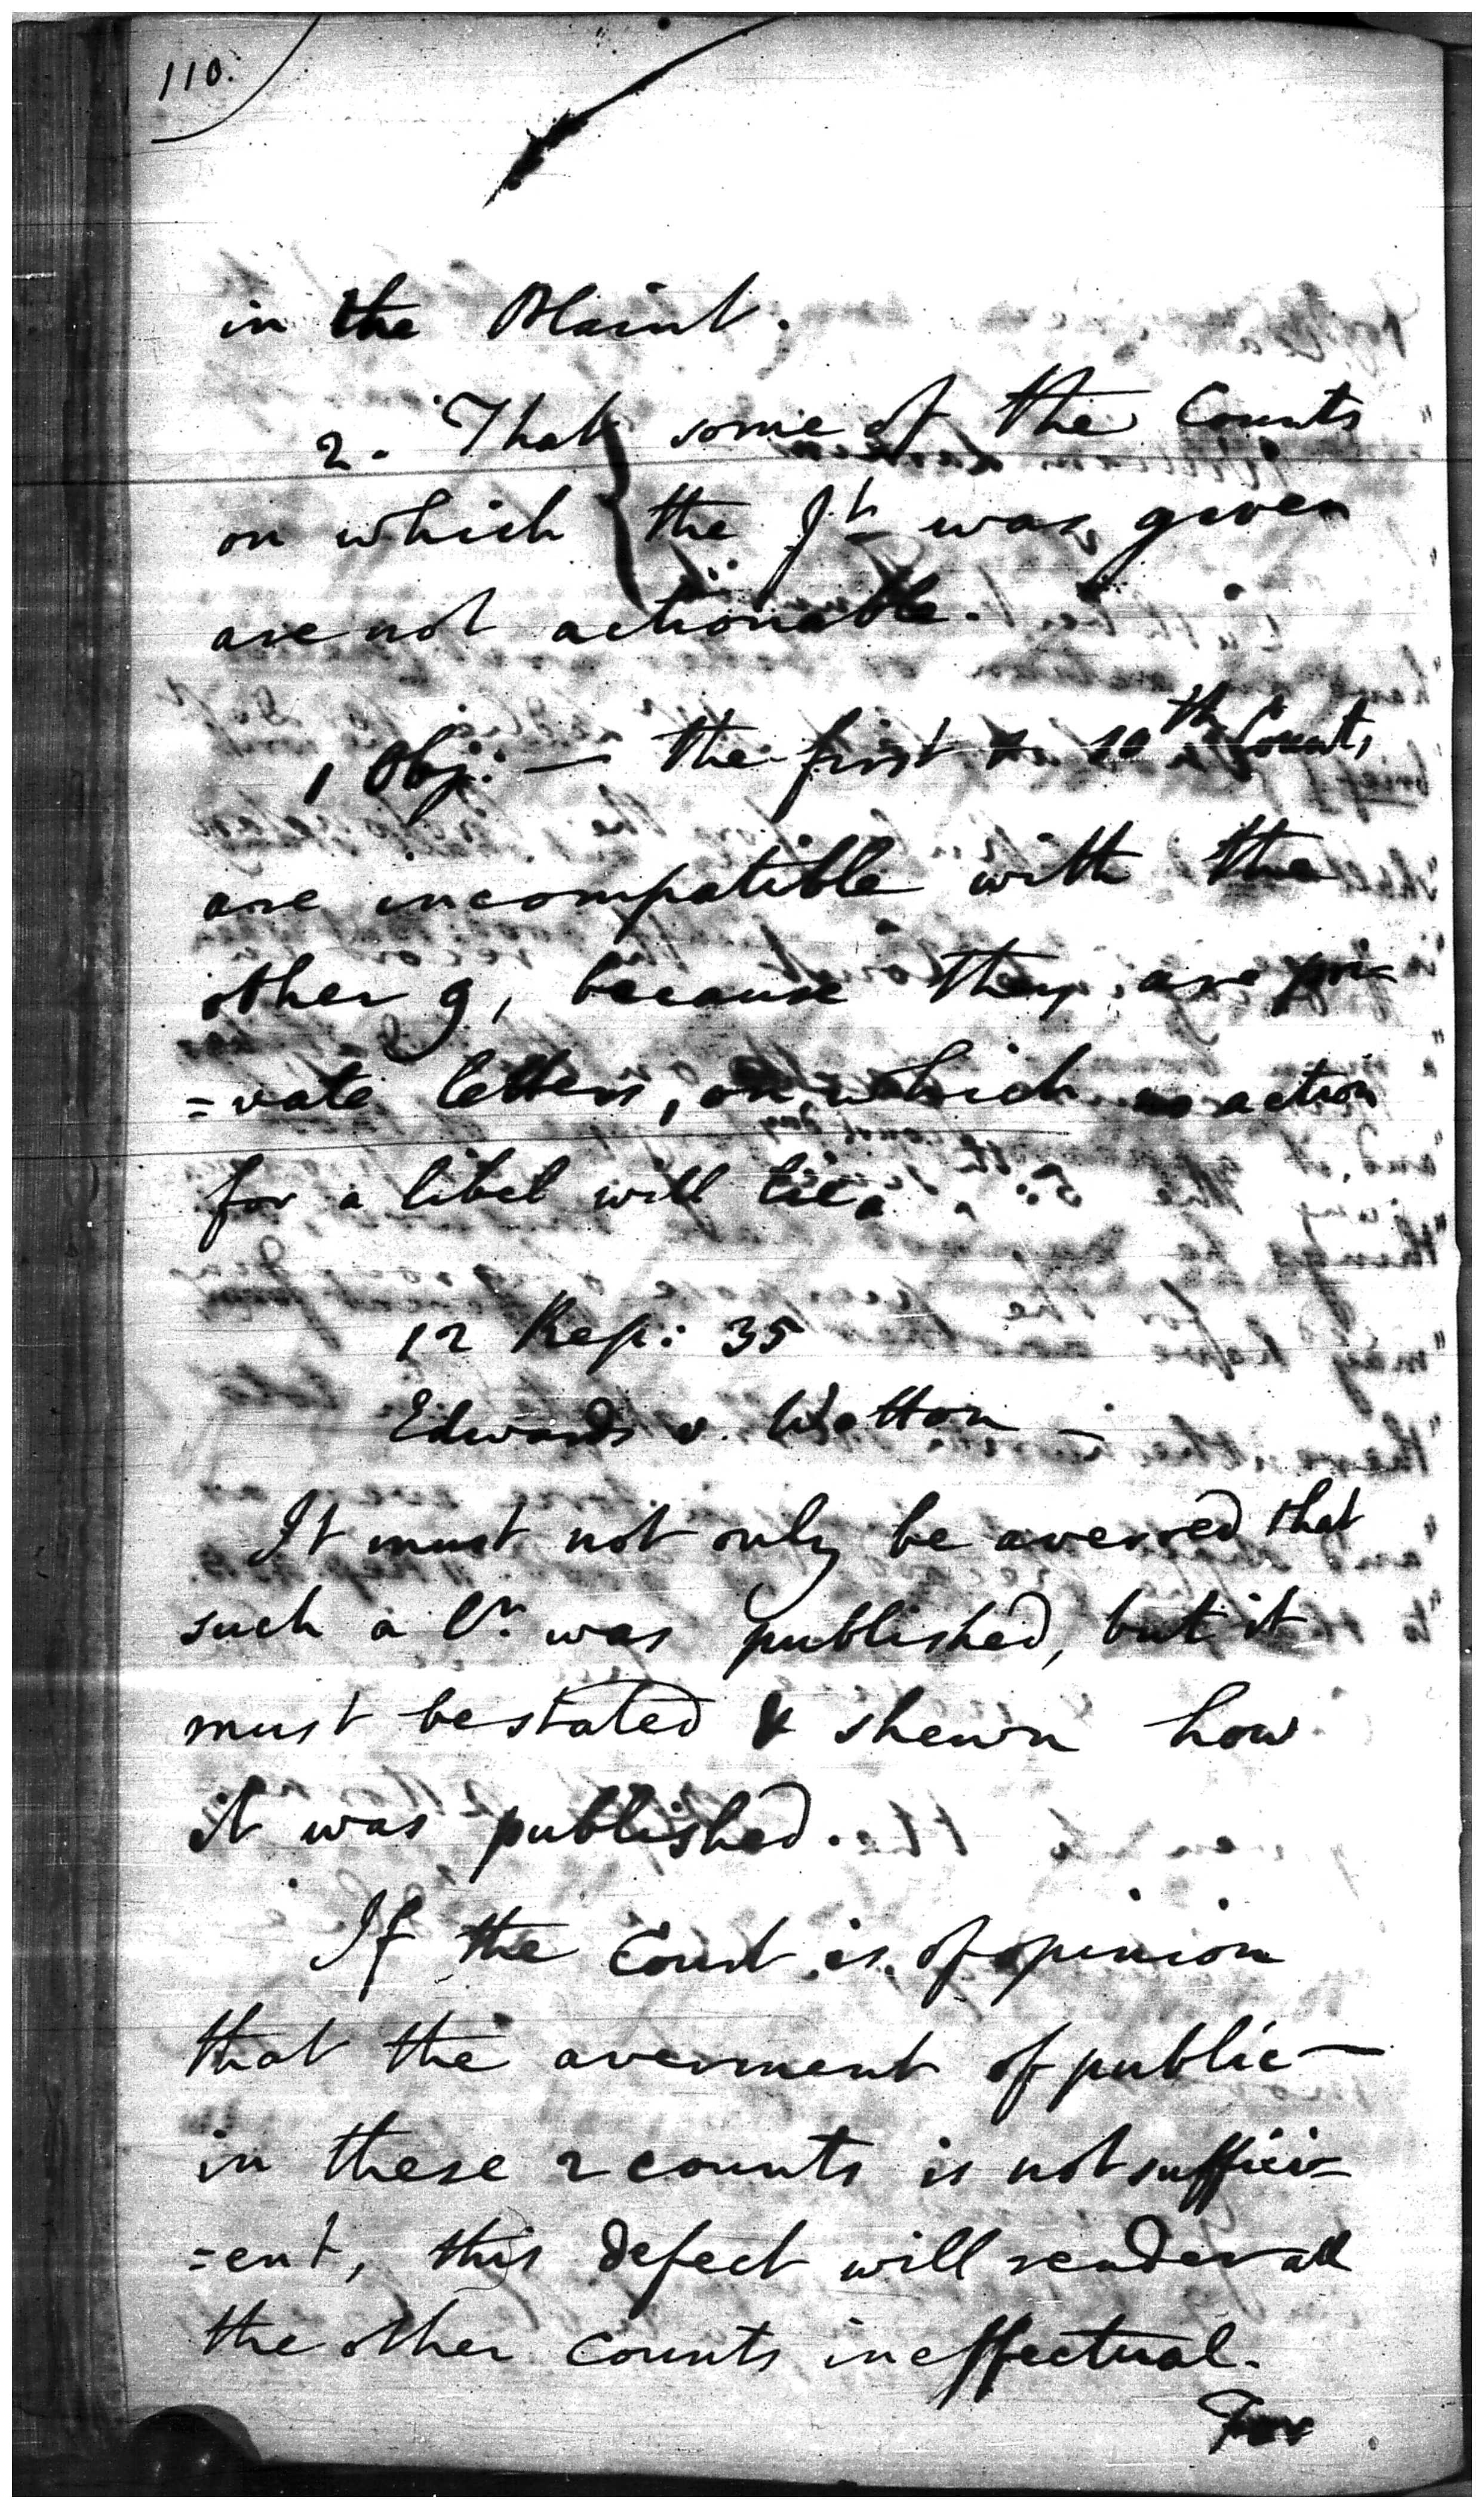 110.
in the Plaint.
2. That some of the Counts
on which the Jt. was given
are not actionable.
1 Obj: — the first & 10th Counts,
are incompatible with the
other 9, because they are pri=
=vate letters, on which no action
for a libel will lie.
12 Rep: 35
Edwards v. Wotton —
It must not only be averred that
such a lr. was published, but it
must be stated & shewn how
it was published.
If the Court is of opinion
that the averment of public—
in these 2 counts is not suffici=
=ent, this defect will render all
the other counts ineffectual.
For